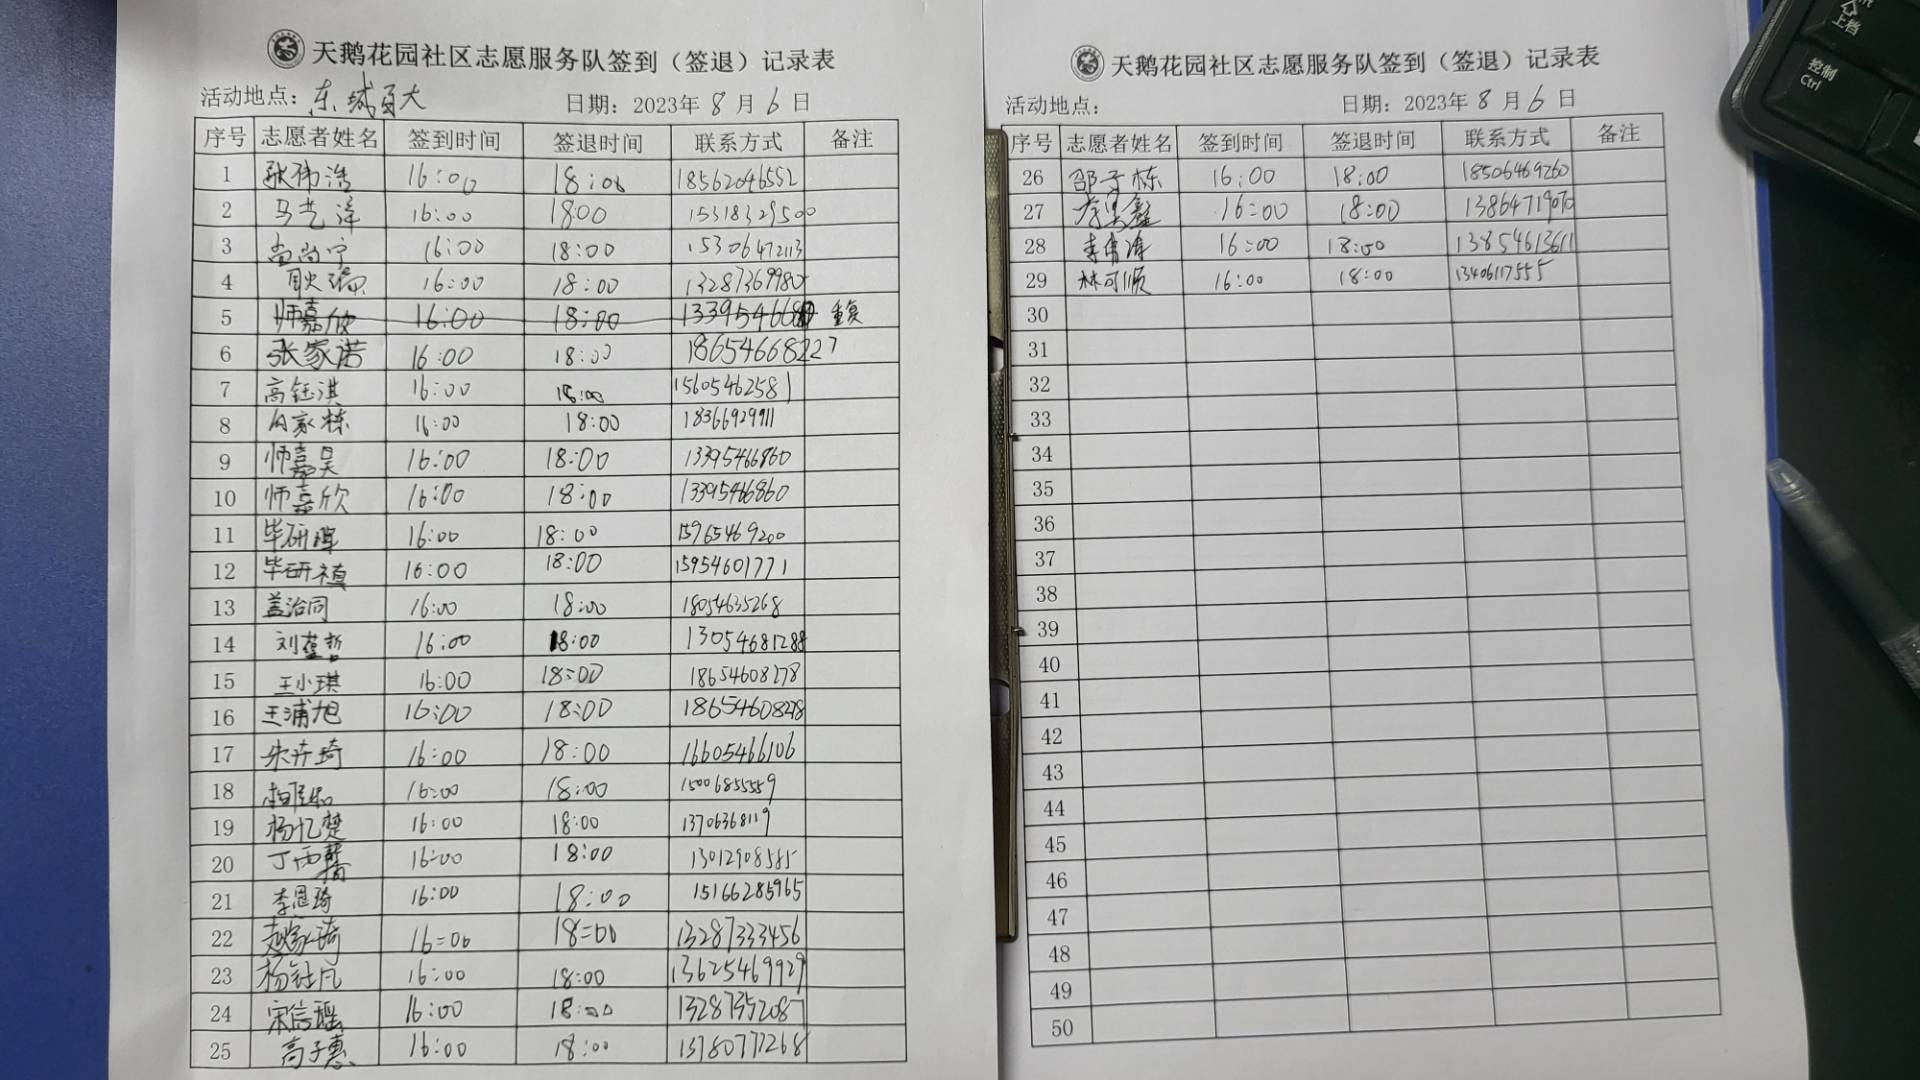 天鹅花园社区志愿服务队签到（签退）记录表
活动地点：东城 日期：2023年8月6日
序号 志愿者姓名 签到时间 签退时间 联系方式 备注
1 张伟浩 16:00 18:00 18562046552
2 马艺泽 16:00 18:00 15318329500
3 尚尚宁 16:00 18:00 15306472113
4 耿瑞 16:00 18:00 13287369980
5 师嘉欣 16:00 18:00 重复
6 张家诺 16:00 18:00 18654668227
7 高钰淇 16:00 18:00 15605462581
8 家栋 16:00 18:00 18366929911
9 师嘉昊 16:00 18:00 13395466860
10 师嘉欣 16:00 18:00 13395466860
11 毕研 16:00 18:00 15965469200
12 毕研禛 16:00 18:00 15954601771
13 盖治同 16:00 18:00 18054635268
14 刘 哲 16:00 18:00 13054681288
15 王小琪 16:00 18:00 18654608278
16 王浦旭 16:00 18:00 18654608278
17 朱卉琦 16:00 18:00 16605466106
18 16:00 18:00 15006855559
19 杨忆楚 16:00 18:00 13706368119
20 丁雨馨 16:00 18:00 13012908585
21 李恩琦 16:00 18:00 15166285965
22 赵家琦 16:00 18:00 13287333456
23 杨钰凡 16:00 18:00 13625469929
24 宋信瑶 16:00 18:00 13287352087
25 高子惠 16:00 18:00 13780772268
天鹅花园社区志愿服务队签到（签退）记录表
活动地点： 日期：2023年8月6日
序号 志愿者姓名 签到时间 签退时间 联系方式 备注
26 邵子栋 16:00 18:00 18506469260
27 李昊鑫 16:00 18:00 13864719070
28 李 16:00 18:00 13854613611
29 林可顺 16:00 18:00 13406117555
30
31
32
33
34
35
36
37
38
39
40
41
42
43
44
45
46
47
48
49
50
上档
控制
Ctrl